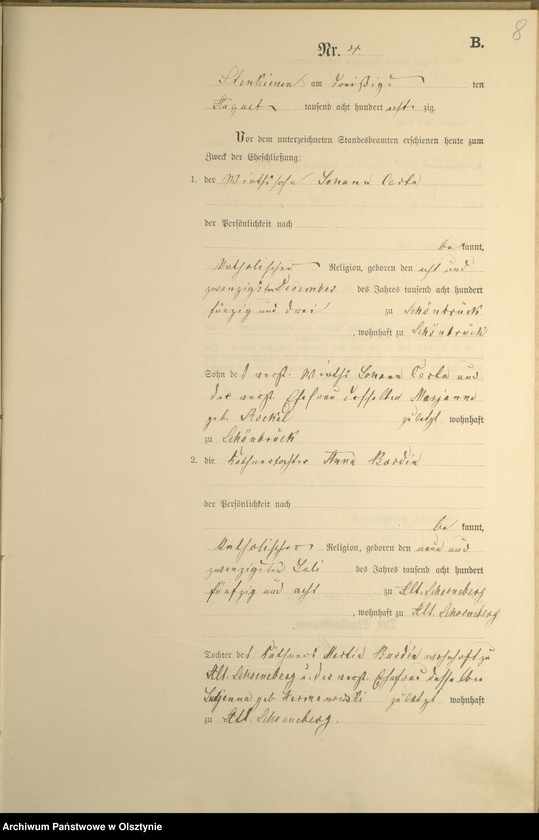 8
B.
Nr. 4.
Stenkienen am dreißig ten
August tausend acht hundert acht zig.
Vor dem unterzeichneten Standesbeamten erschienen heute zum
Zweck der Eheschließung:
1. der Wirthssohn Johann Certa
der Persönlichkeit nach
be kannt,
katholischer Religion, geboren den acht und
zwanzigsten December des Jahres tausend acht hundert
fünfzig und drei zu Schönbrück
, wohnhaft zu Schönbrück
Sohn des verst. Wirths Johann Certa und
der verst. Ehefrau desselben Marianna
geb. zuletzt wohnhaft
zu Schönbrück
2. die Käthnertochter Anna Bardin
der Persönlichkeit nach
be kannt,
katholischer Religion, geboren den neun und
zwanzigsten Juli des Jahres tausend acht hundert
fünfzig und acht zu Alt. Schoeneberg
, wohnhaft zu Alt. Schoeneberg
Tochter des Käthners Martin Bardin wohnhaft zu
Alt. Schoeneberg u. der verst. Ehefrau desselben
geb. Hermanowski zuletzt wohnhaft
zu Alt. Schoeneberg.
Archiwum Państwowe w Olsztynie